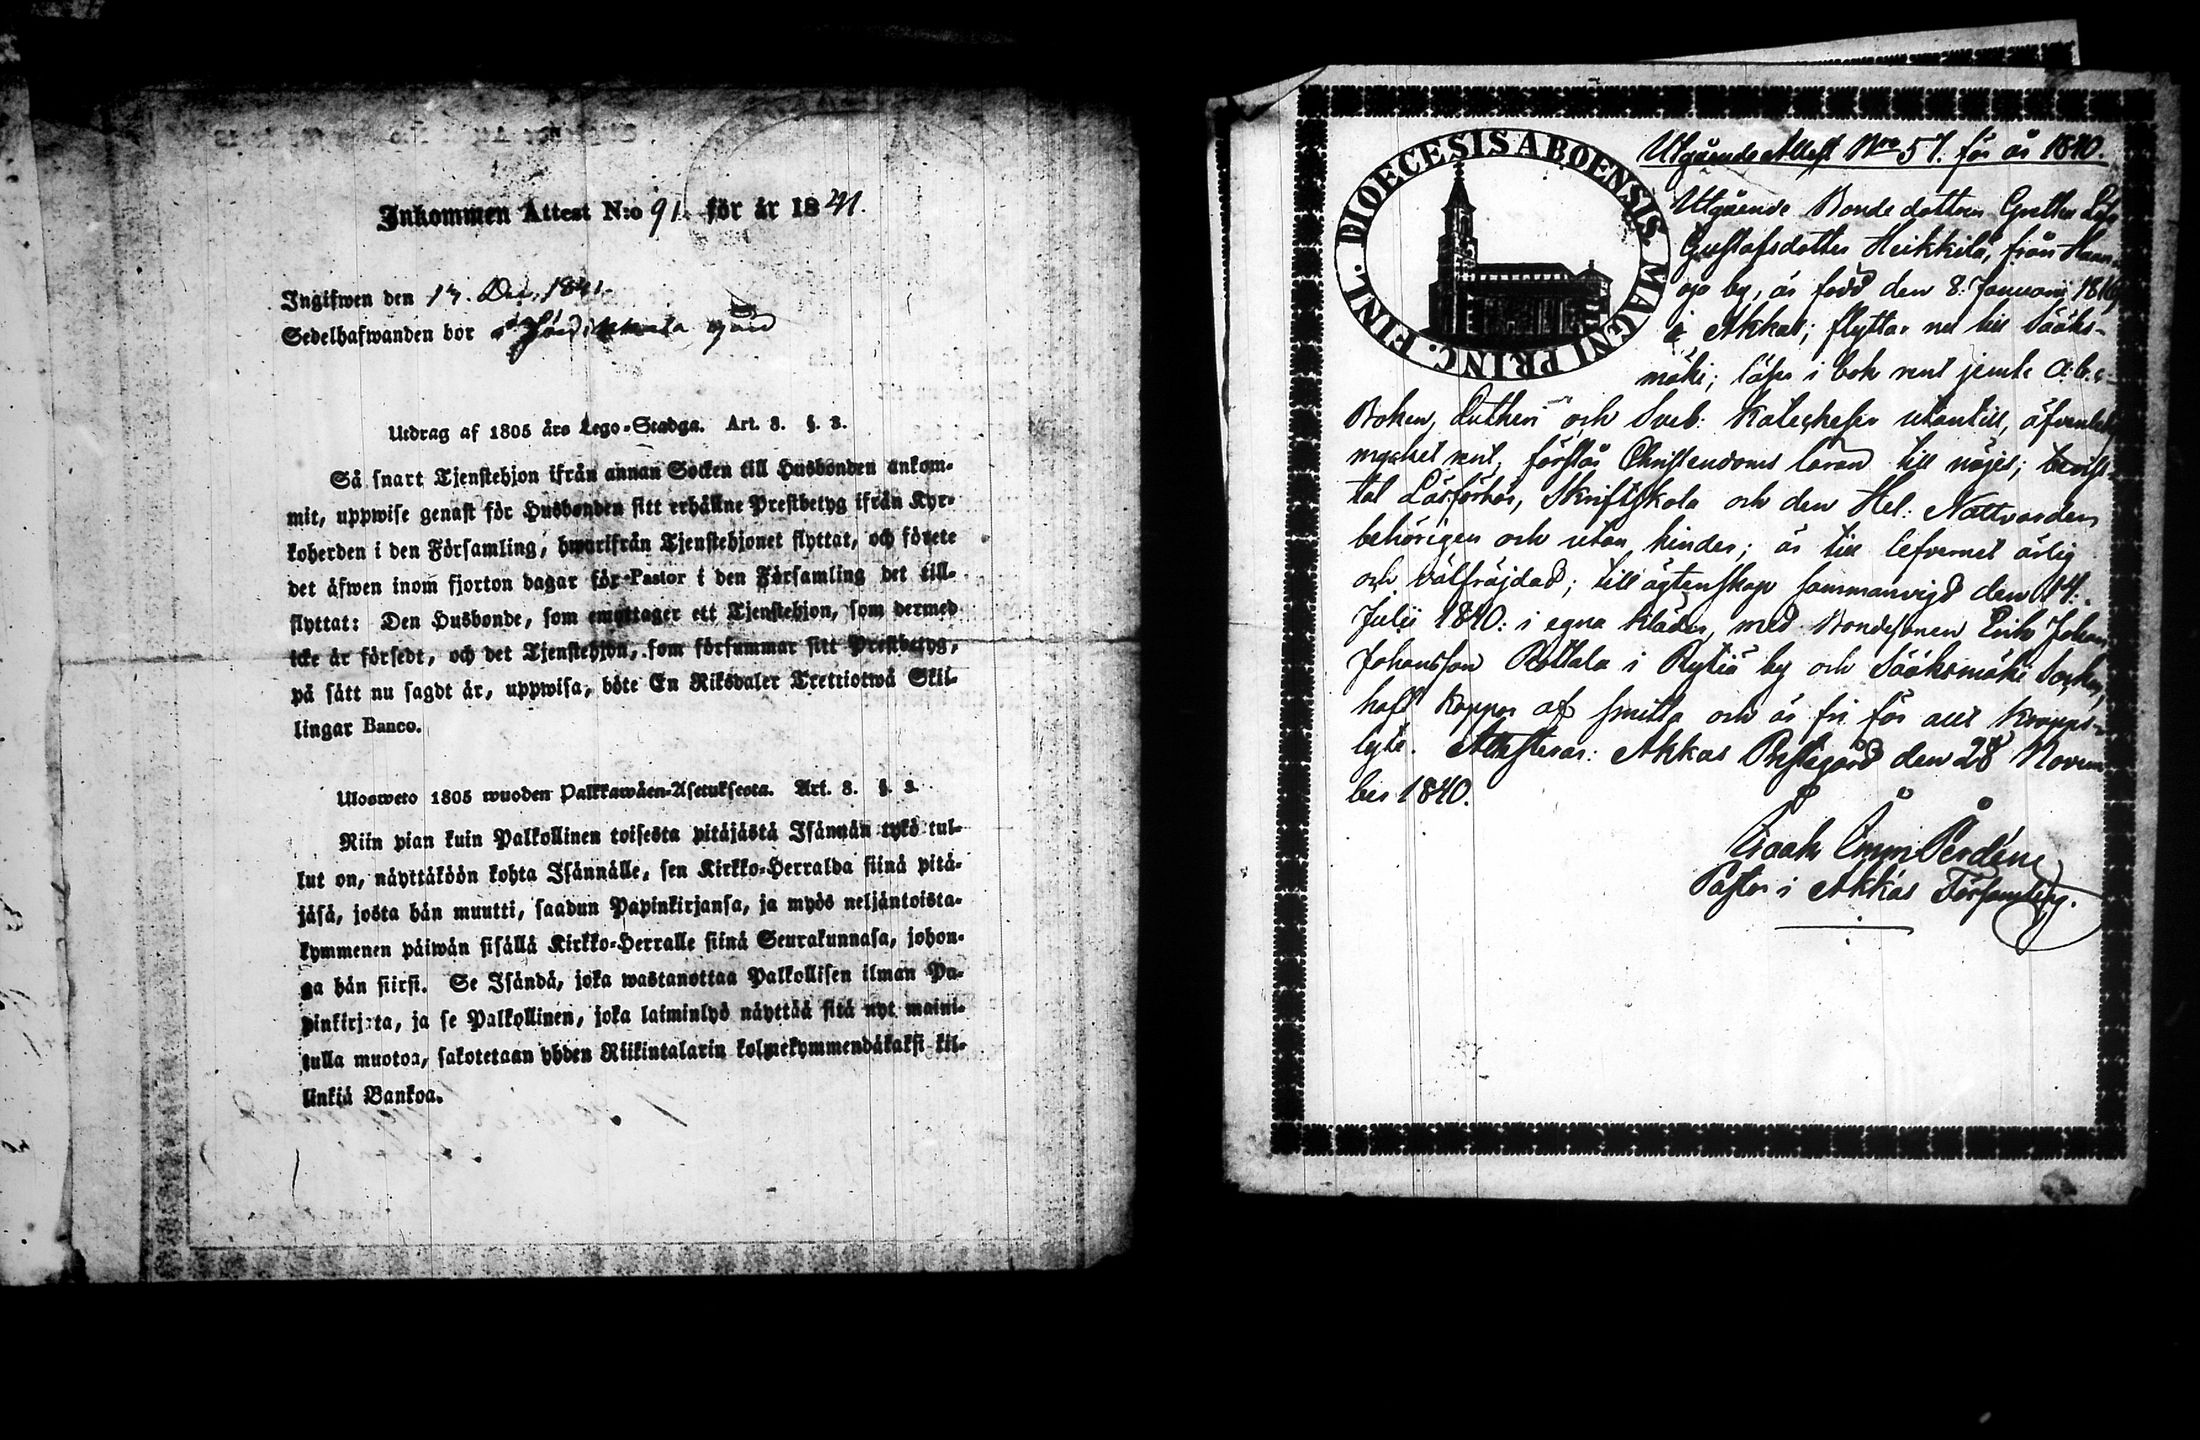 Inkommen Attest N:o 91. för år 1841.
Ingifwen den 17. Dec. 1841.
Sedelhafwanden bor gård
Utdrag af 1805 års Lego-Stadga. Art. 8. §. 2.
Så snart Tjenstehjon ifrån annan Socken till Husbonden ankom-
mit, uppwise genast för Husbonden sitt erhållne Prestbetyg ifrån Kyr-
koherden i den Församling, hwarifrån Tjenstehjonet flyttat, och förete
det äfwen inom fjorton dagar för Pastor i den Församling det till-
flyttat: Den Husbonde, som emottager ett Tjenstehjon, som dermed
icke är försedt, och det Tjenstehjon, som försummar sitt Prestbetyg,
på sätt nu sagdt är, uppwisa, böte En Riksdaler Trettiotwå Skil-
lingar Banco.
Ulosweto 1805 wuoden Palkkawäen-Asetuksesta. Art. 8. §. 2.
Niin pian kuin Palkollinen toisesta pitäjästä Isännän tykö tul-
lut on, näyttäköön kohta Isännälle, sen Kirkko-Herralda siinä pitä-
jäsä, josta hän muutti, saadun Papinkirjansa, ja myös neljäntoista-
kymmenen päiwän sisällä Kirkko-Herralle siinä Seurakunnasa, johon-
ga hän siirsi. Se Isändä, joka wastanottaa Palkollisen ilman Pa-
pinkirjata, ja se Palkollinen, joka laiminlyö näyttää sitä nyt maini-
tulla muotoa, sakotetaan yhden Riikintalarin kolmekymmendäkaksi kil-
linkiä Bankoa.
DIOECESIS ABOENSIS. MAGNI PRINC. FINL.
Utgående Attest Nro 57. för år 1840.
Utgående Bondedottren Gretha
Gustafsdotter Heikkilä, från
by, är född den 8. Januarii
i Akkas; flyttar nu till Sääks-
mäki; läser i bok rent jemte a.b.c.-
Boken, Lutheri och Sveb. Katecheser utantill,
mycket rent, förstår Christendoms läran till nöjes;
Läsförhör, Skriftskola och den Hel. Nattvarden
behörigen och utan hinder; är till lefvernet ärlig
och välfräjdad; till ägtenskap sammanvigd den 14.
Julii 1840. i egna kläder, med Bondesonen Erik Johan
Johansson Rottala i by och Sääksmäki Socken,
haft koppor af smitta och är fri för allt kropps-
lyte. Attesteras: Akkas Prestegård den 28 Novem
ber 1840.
Pastor i Akkas Församling.